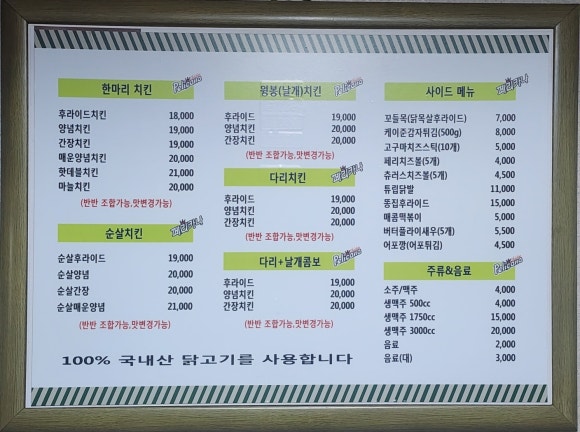 한마리 치킨 Pelicana
후라이드치킨 18,000
양념치킨 19,000
간장치킨 19,000
매운양념치킨 20,000
핫데블치킨 21,000
마늘치킨 20,000
(반반 조합가능,맛변경가능)
순살치킨 페리카나
순살후라이드 19,000
순살양념 20,000
순살간장 20,000
순살매운양념 21,000
(반반 조합가능,맛변경가능)
윙봉(날개)치킨 Pelicana
후라이드 19,000
양념치킨 19,000
간장치킨 19,000
(반반 조합가능,맛변경가능)
다리치킨 페리카나
후라이드 19,000
양념치킨 20,000
간장치킨 20,000
다리+날개콤보 Pelicana
후라이드 19,000
양념치킨 20,000
간장치킨 20,000
(반반 조합가능,맛변경가능)
사이드 메뉴 페리카나
꼬들목(닭목살후라이드) 7,000
케이준감자튀김(500g) 8,000
고구마치즈스틱(10개) 5,000
페리치즈볼(5개) 4,000
츄러스치즈볼(5개) 4,500
튜립닭발 11,000
똥집후라이드 15,000
매콤떡볶이 5,000
버터플라이새우(5개) 5,500
어포깡(어포튀김) 4,500
주류&음료 Pelicana
소주/맥주 4,000
생맥주 500cc 4,000
생맥주 1750cc 15,000
생맥주 3000cc 20,000
음료 2,000
음료(대) 3,000
100% 국내산 닭고기를 사용합니다